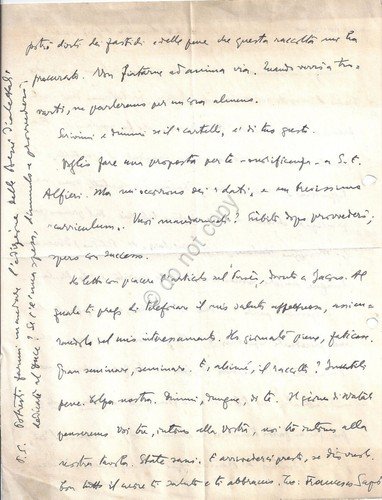 potrò dirti dei fastidi e delle pene che questa raccolta me ha
procurato. Non fiatarne ad anima viva. Quando verrò a
, ne parleremo per un'ora almeno.
Scrivimi e dimmi se il "Cartelli, è di tuo gusto.
Voglio fare una proposta per te a S. E.
Alfieri. Ma mi occorrono dei dati, e un brevissimo
curriculum. Vuoi mandarmeli? Subito dopo provvederò,
spero con successo.
Ho letto con piacere l'articolo sul dovuto a Jacono. Al
quale ti prego di telefonare il mio saluto affettuoso,
del mio interessamento. Ho giornate piene, faticose.
Gran seminare, seminare. E, ahimé, il raccolto? Inutili
pene. Colpa nostra. Dimmi, dunque, di te. Il giorno di Natale
penseremo voi tre, intorno alla vostra, noi tre intorno alla
nostra tavola. State sani. E arrivederci presto, se dio vuole.
Con tutto il cuore ti saluto e ti abbraccio. Tuo Francesco
P.S. Potresti farmi mandare l'edizione delle
dedicate al Duce? Se c'è una spesa, dimmelo e provvederò.
© do not copy